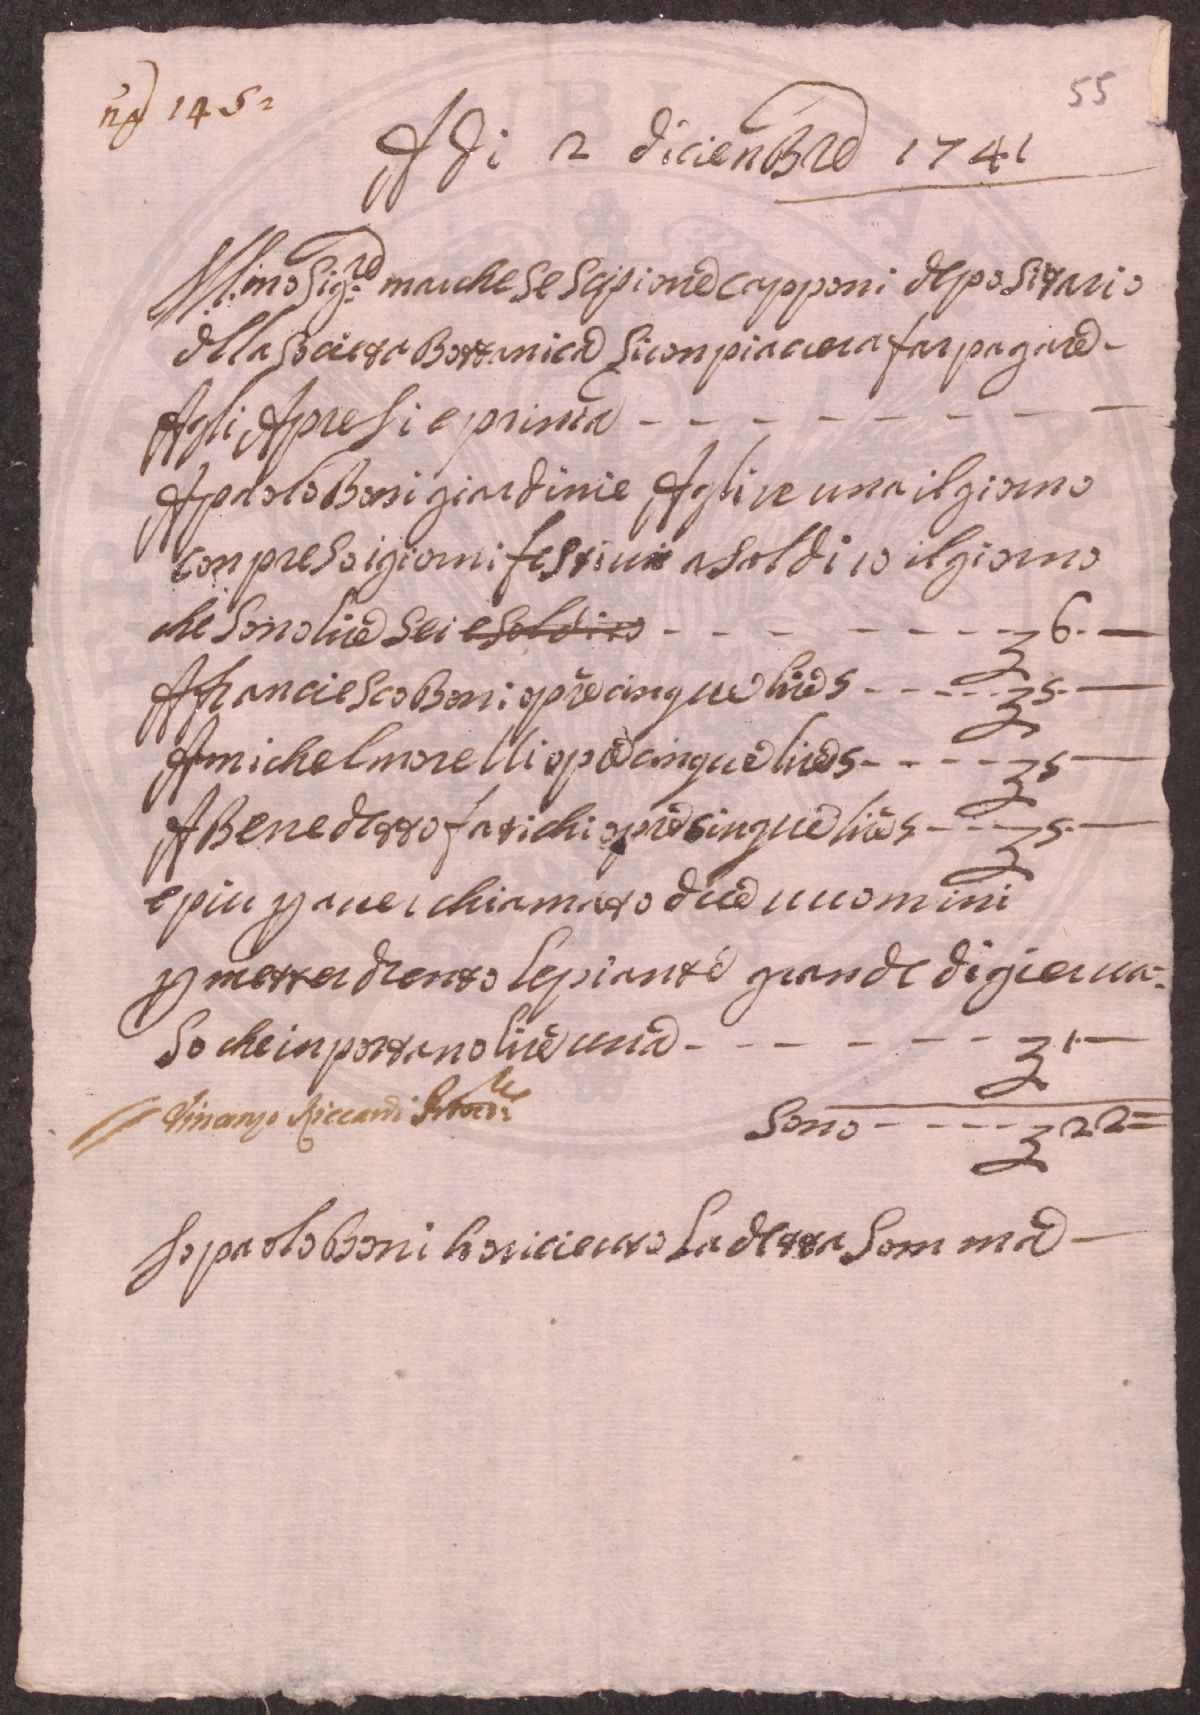 nº 145
55
A di 2 diciembre 1741
Ill.mo Sig.re marchese Scipione Capponi depositario
della Societta Bottanica si conpiacera far pagare -
Agli Apresi e prima - - - - - - - -
A paolo Boni giardinie una il giorno
conpreso i giorni festiui a soldi 10 il giorno
che sono lire sei e soldi 10 - - - - - - - 6. -
A franciesco Boni opre cinque lire 5 - - - - - 5. -
A michel morelli opre cinque lire 5 - - - - - 5 -
A Benedetto fatichi opre cinque lire 5 - - - 5. -
e piu p auer chiamato due uuomini
p metter drento le piante grande di gierua=
so che inportano lire una - - - - - - - 1. -
Vincenzo Riccardi
Sono - - - - - 22=
Io paolo Boni ho riceuto la detta somma -